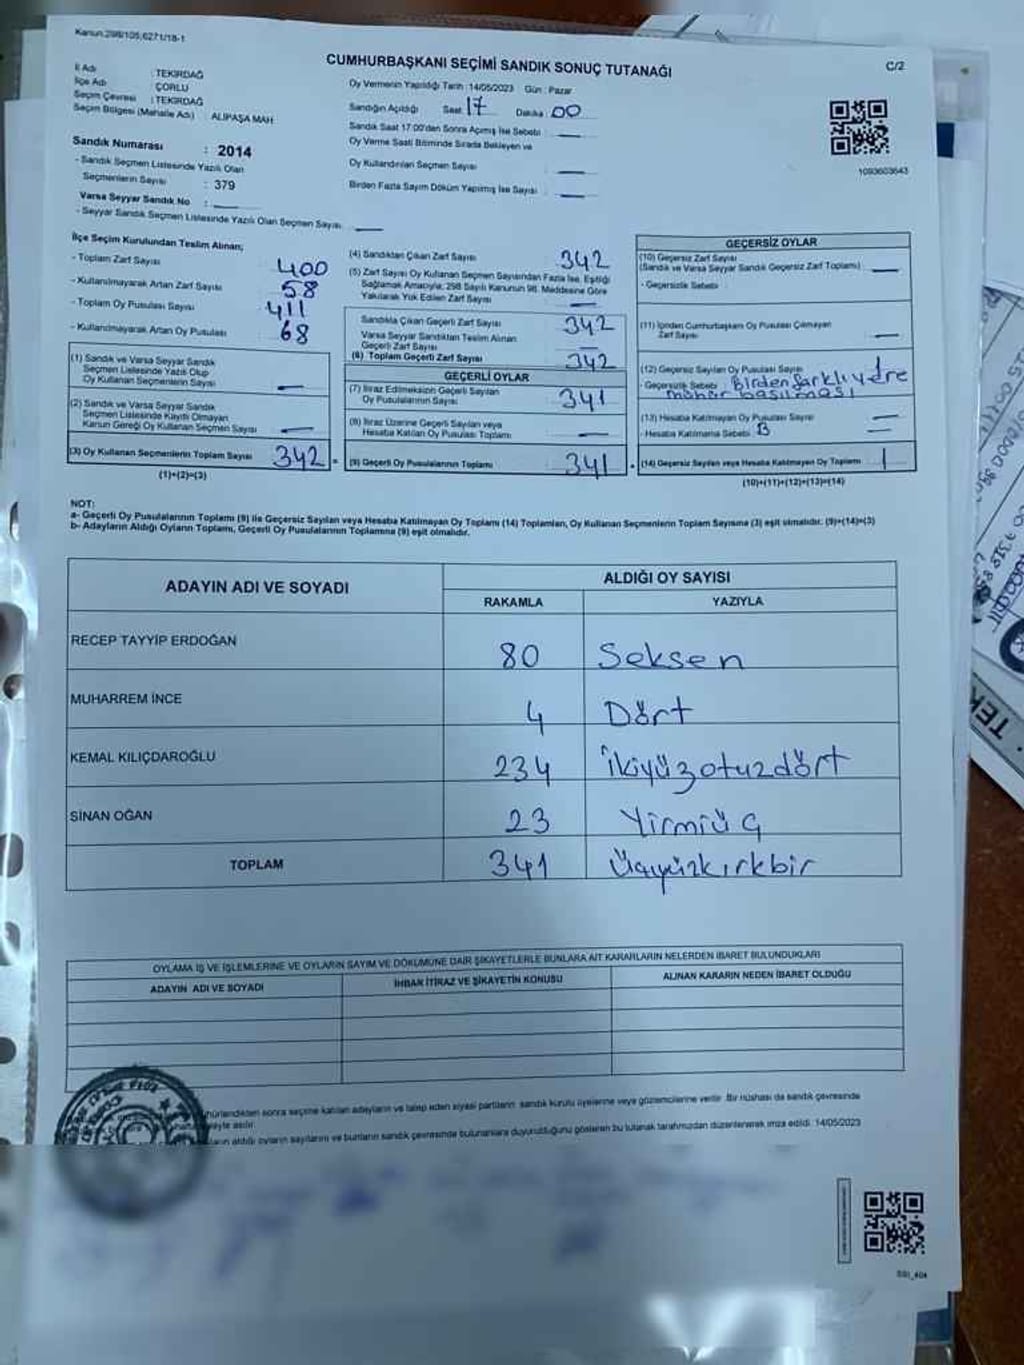 Kanun:298/105,6271/18-1
C/2
CUMHURBAŞKANI SEÇİMİ SANDIK SONUÇ TUTANAĞI
İl Adı : TEKİRDAĞ
İlçe Adı : ÇORLU
Seçim Çevresi : TEKİRDAĞ
Seçim Bölgesi (Mahalle Adı) : ALİPAŞA MAH
Sandık Numarası : 2014
- Sandık Seçmen Listesinde Yazılı Olan
Seçmenlerin Sayısı : 379
Varsa Seyyar Sandık No :
- Seyyar Sandık Seçmen Listesinde Yazılı Olan Seçmen Sayısı
Oy Vermenin Yapıldığı Tarih : 14/05/2023 Gün : Pazar
Sandığın Açıldığı Saat 17 Dakika 00
Sandık Saat 17:00'den Sonra Açılmış İse Sebebi
Oy Verme Saati Bitiminde Sırada Bekleyen ve
Oy Kullandırılan Seçmen Sayısı
Birden Fazla Sayım Döküm Yapılmış İse Sayısı
1093603643
İlçe Seçim Kurulundan Teslim Alınan;
- Toplam Zarf Sayısı 400
- Kullanılmayarak Artan Zarf Sayısı 58
- Toplam Oy Pusulası Sayısı 411
- Kullanılmayarak Artan Oy Pusulası 68
(1) Sandık ve Varsa Seyyar Sandık
Seçmen Listesinde Yazılı Olup
Oy Kullanan Seçmenlerin Sayısı —
(2) Sandık ve Varsa Seyyar Sandık
Seçmen Listesinde Kayıtlı Olmayan
Kanun Gereği Oy Kullanan Seçmen Sayısı —
(3) Oy Kullanan Seçmenlerin Toplam Sayısı 342 =
(1)+(2)=(3)
(4) Sandıktan Çıkan Zarf Sayısı 342
(5) Zarf Sayısı Oy Kullanan Seçmen Sayısından Fazla İse, Eşitliği
Sağlamak Amacıyla; 298 Sayılı Kanunun 98. Maddesine Göre
Yakılarak Yok Edilen Zarf Sayısı —
Sandıkta Çıkan Geçerli Zarf Sayısı 342
Varsa Seyyar Sandıktan Teslim Alınan
Geçerli Zarf Sayısı —
(6) Toplam Geçerli Zarf Sayısı 342
GEÇERLİ OYLAR
(7) İtiraz Edilmeksizin Geçerli Sayılan
Oy Pusulalarının Sayısı 341
(8) İtiraz Üzerine Geçerli Sayılan veya
Hesaba Katılan Oy Pusulası Toplamı —
(9) Geçerli Oy Pusulalarının Toplamı 341
GEÇERSİZ OYLAR
(10) Geçersiz Zarf Sayısı
(Sandık ve Varsa Seyyar Sandık Geçersiz Zarf Toplamı) —
- Geçersizlik Sebebi :
(11) İçinden Cumhurbaşkanı Oy Pusulası Çıkmayan
Zarf Sayısı —
(12) Geçersiz Sayılan Oy Pusulası Sayısı 1
- Geçersizlik Sebebi : Birden farklı yere
mühür basılması
(13) Hesaba Katılmayan Oy Pusulası Sayısı —
- Hesaba Katılmama Sebebi :
(14) Geçersiz Sayılan veya Hesaba Katılmayan Oy Toplamı 1
(10)+(11)+(12)+(13)=(14)
NOT:
a- Geçerli Oy Pusulalarının Toplamı (9) ile Geçersiz Sayılan veya Hesaba Katılmayan Oy Toplamı (14) Toplamları, Oy Kullanan Seçmenlerin Toplam Sayısına (3) eşit olmalıdır. (9)+(14)=(3)
b- Adayların Aldığı Oyların Toplamı, Geçerli Oy Pusulalarının Toplamına (9) eşit olmalıdır.
ADAYIN ADI VE SOYADI
ALDIĞI OY SAYISI
RAKAMLA YAZIYLA
RECEP TAYYİP ERDOĞAN 80 Seksen
MUHARREM İNCE 4 Dört
KEMAL KILIÇDAROĞLU 234 İkiyüzotuzdört
SİNAN OĞAN 23 Yirmiüç
TOPLAM 341 Üçyüzkırkbir
OYLAMA İŞ VE İŞLEMLERİNE VE OYLARIN SAYIM VE DÖKÜMÜNE DAİR ŞİKAYETLERLE BUNLARA AİT KARARLARIN NELERDEN İBARET BULUNDUKLARI
ADAYIN ADI VE SOYADI İHBAR İTİRAZ VE ŞİKAYETİN KONUSU ALINAN KARARIN NEDEN İBARET OLDUĞU
sonra seçime katılan adayların ve talep eden siyasi partilerin sandık kurulu üyelerine veya gözlemcilerine verilir. Bir nüshası da sandık çevresinde
asılır.
aldığı oyların sayılarını ve bunların sandık çevresinde bulunanlara duyurulduğunu gösteren bu tutanak tarafımızdan düzenlenerek imza edildi. 14/05/2023